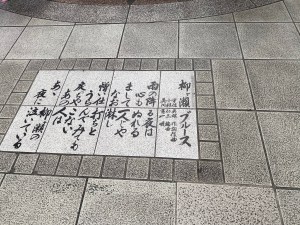 柳ヶ瀬ブルース
雨の降る夜は
心もぬれる
まして一人じゃ
なお淋し
憎い仕打ちと
うらんでみても
戻っちゃこない
あの人は
あゝ柳ヶ瀬の
夜に泣いている